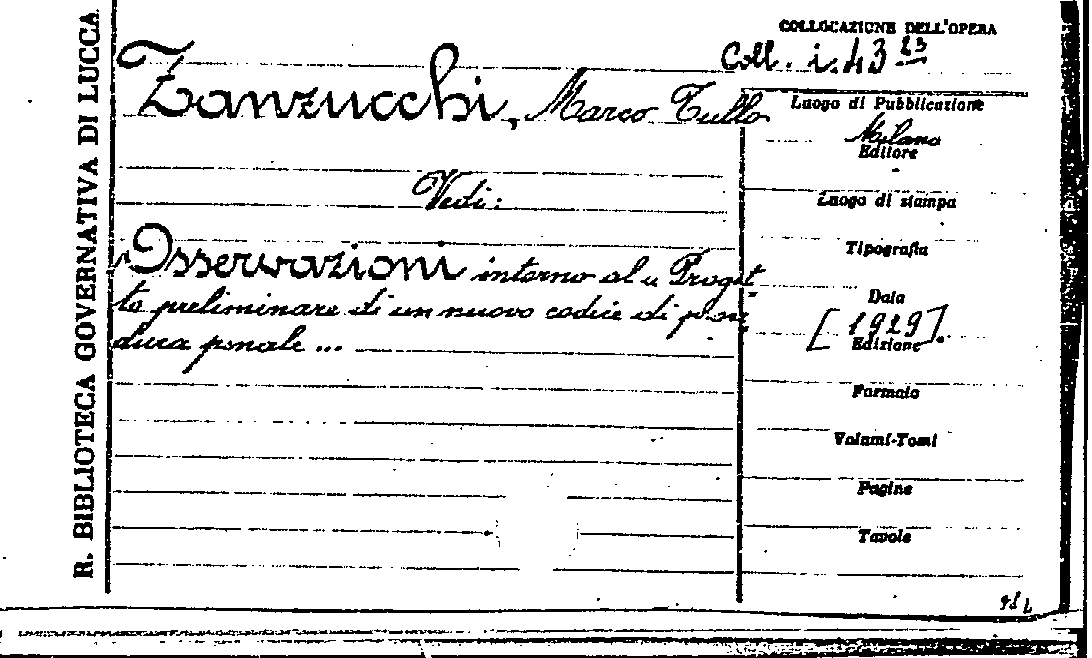 R. BIBLIOTECA GOVERNATIVA DI LUCCA
COLLOCAZIONE DELL'OPERA
Coll. i. 43 23
Zanzucchi, Marco Tullo
Vedi:
Osservazioni intorno al Proget
to preliminare di un nuovo codice di
penale ...
Luogo di Pubblicazione
Milano
Editore
Luogo di stampa
Tipografia
Data
[1929].
Edizione
Formato
Volumi-Tomi
Pagine
Tavole